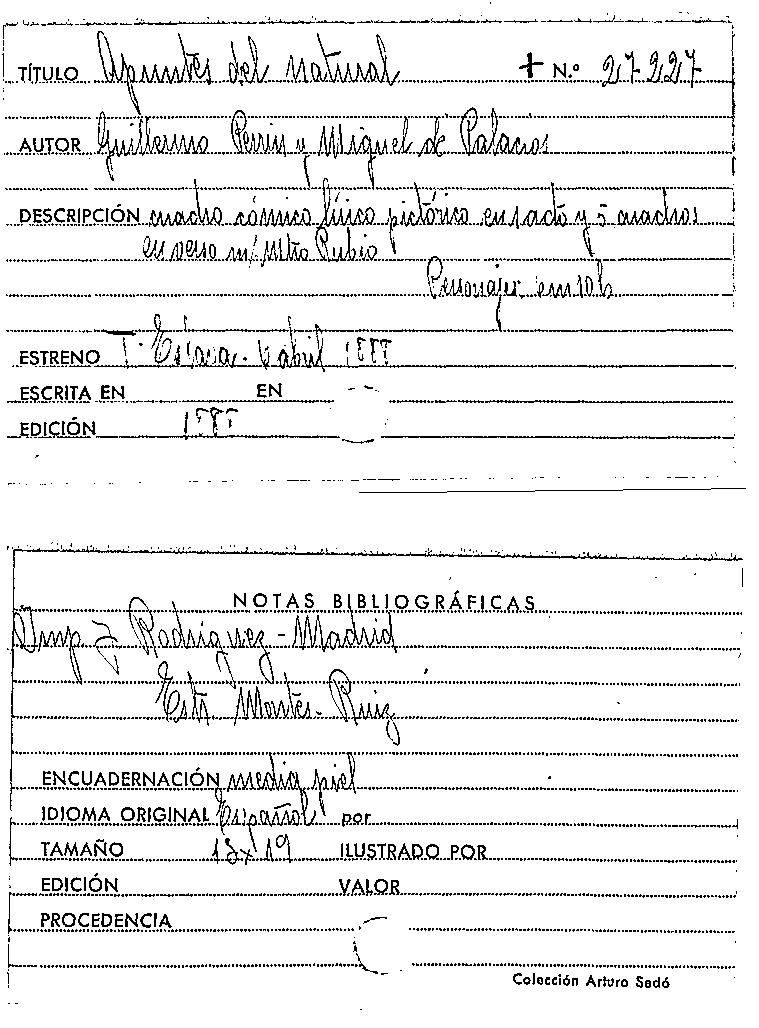 TÍTULO Apuntes del natural + N.º 27227
AUTOR Guillermo Perrin y Miguel de Palacios
DESCRIPCIÓN cuadro cómico lírico pictórico en 1 acto y 5 cuadros
en verso m/ Mtro Rubio
Personajes
ESTRENO T. Eslava. 6 abril 1888
ESCRITA EN EN
EDICIÓN 1888
NOTAS BIBLIOGRÁFICAS
Imp J Rodriguez - Madrid
Estr. Montes - Ruiz
ENCUADERNACIÓN media piel
IDIOMA ORIGINAL Español por
TAMAÑO 13x19 ILUSTRADO POR
EDICIÓN VALOR
PROCEDENCIA
Colección Arturo Sedó